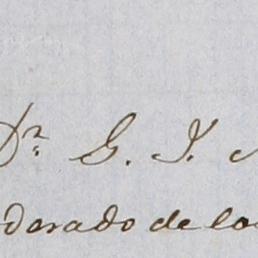 Dr. G. J.
derado de los